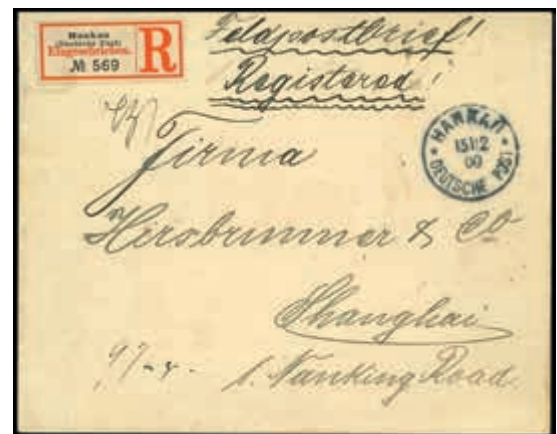 Hankau
(Deutsche Post)
Eingeschrieben.
№ 569
R
Feldpostbrief!
Registered!
HANKAU
15/12
00
DEUTSCHE POST
Firma
Hirsbrunner & Co
Shanghai
1. Nanking Road.